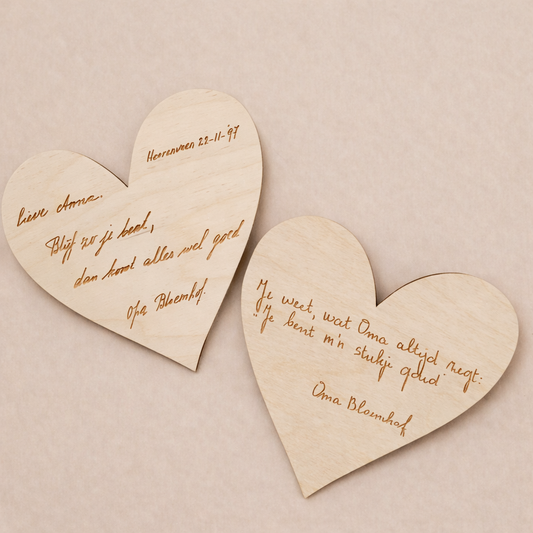 Heerenveen 22-11-'97
Lieve Anna.
Blijf zo je bent,
dan komt alles wel goed
Opa Bloemhof.
Je weet, wat Oma altijd zegt:
"Je bent m'n stukje goud"
Oma Bloemhof